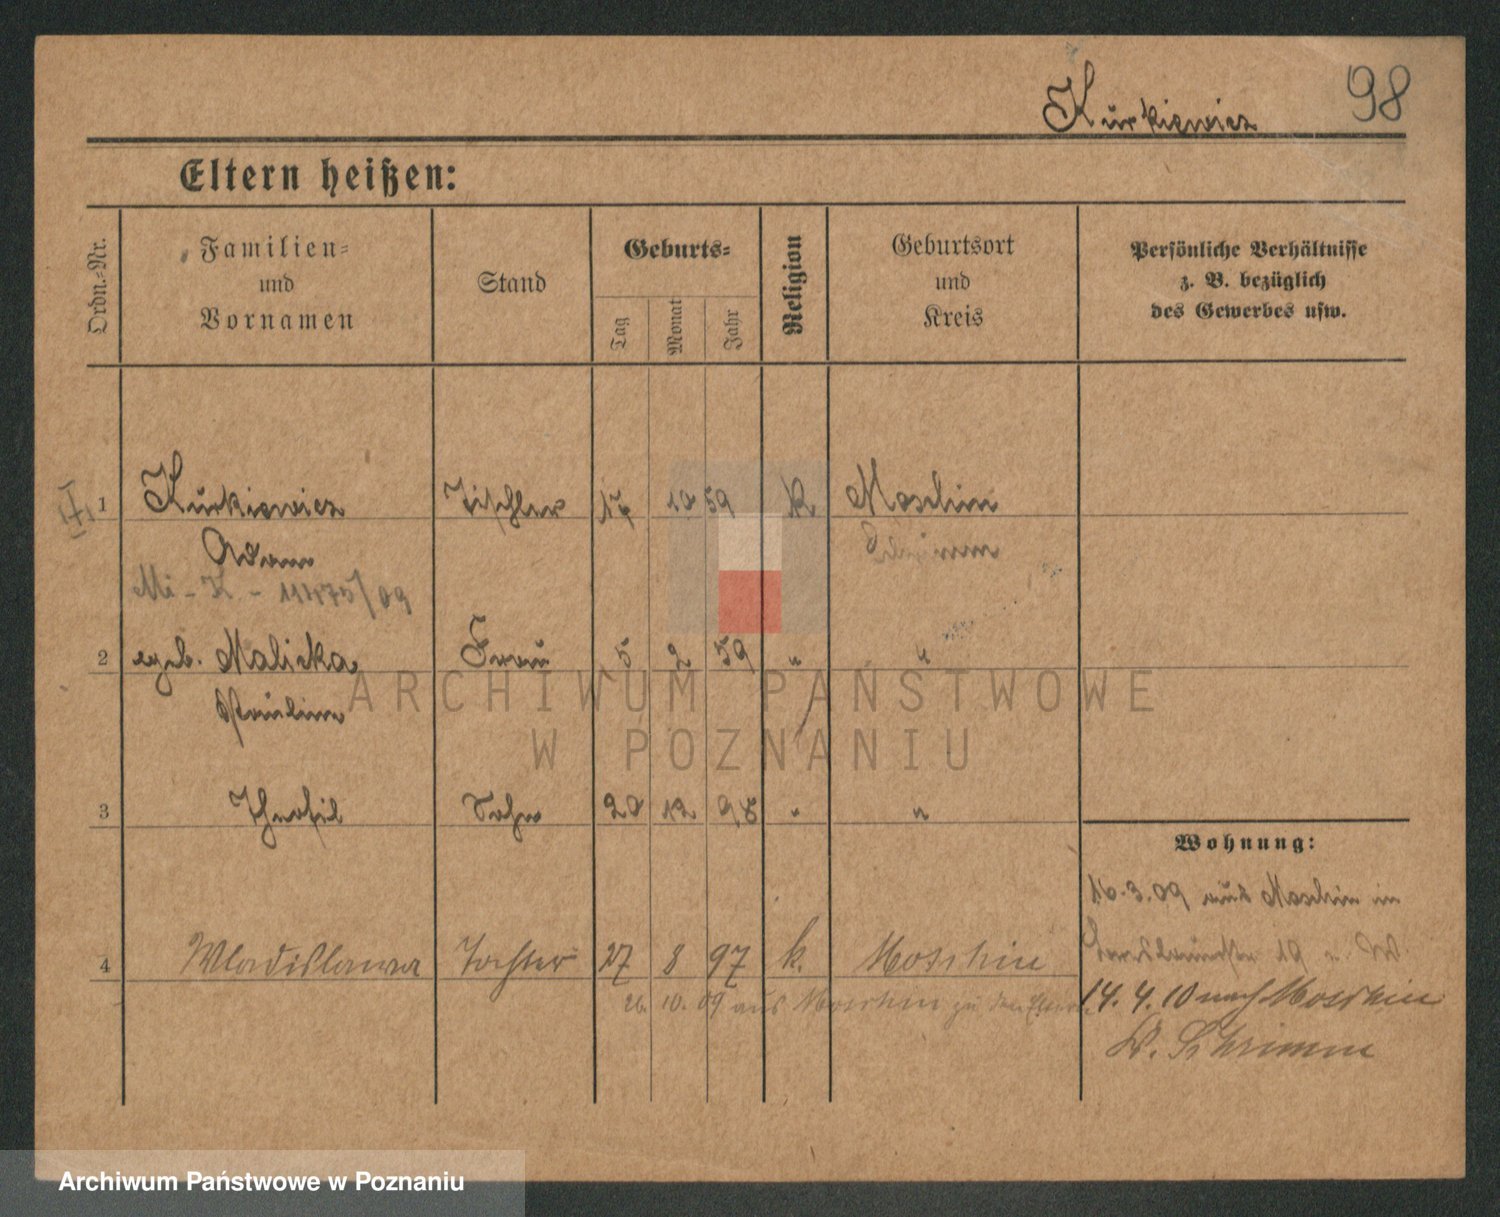 Kurkiewicz 98
Eltern heißen:
Ordn.-Nr.
Familien-
und
Vornamen
Stand
Geburts-
Tag
Monat
Jahr
Religion
Geburtsort
und
Kreis
Persönliche Verhältnisse
z. B. bezüglich
des Gewerbes usw.
1 Kurkiewicz Tischler 17 10 59 k Moschin
Adam Schrimm
Mi - K -
2 geb. Malicka Frau 5 2 59 " "
Paulina
3 Theofil Sohn 20 12 98 " "
Wohnung:
16.3.09 aus Moschin in
19
4 Wladislawa Tochter 27 8 97 k. Moschin
26. 10. 09 aus Moschin zu den Eltern
14. 4. 10 nach Moschin
Kr. Schrimm
ARCHIWUM PAŃSTWOWE
W POZNANIU
Archiwum Państwowe w Poznaniu